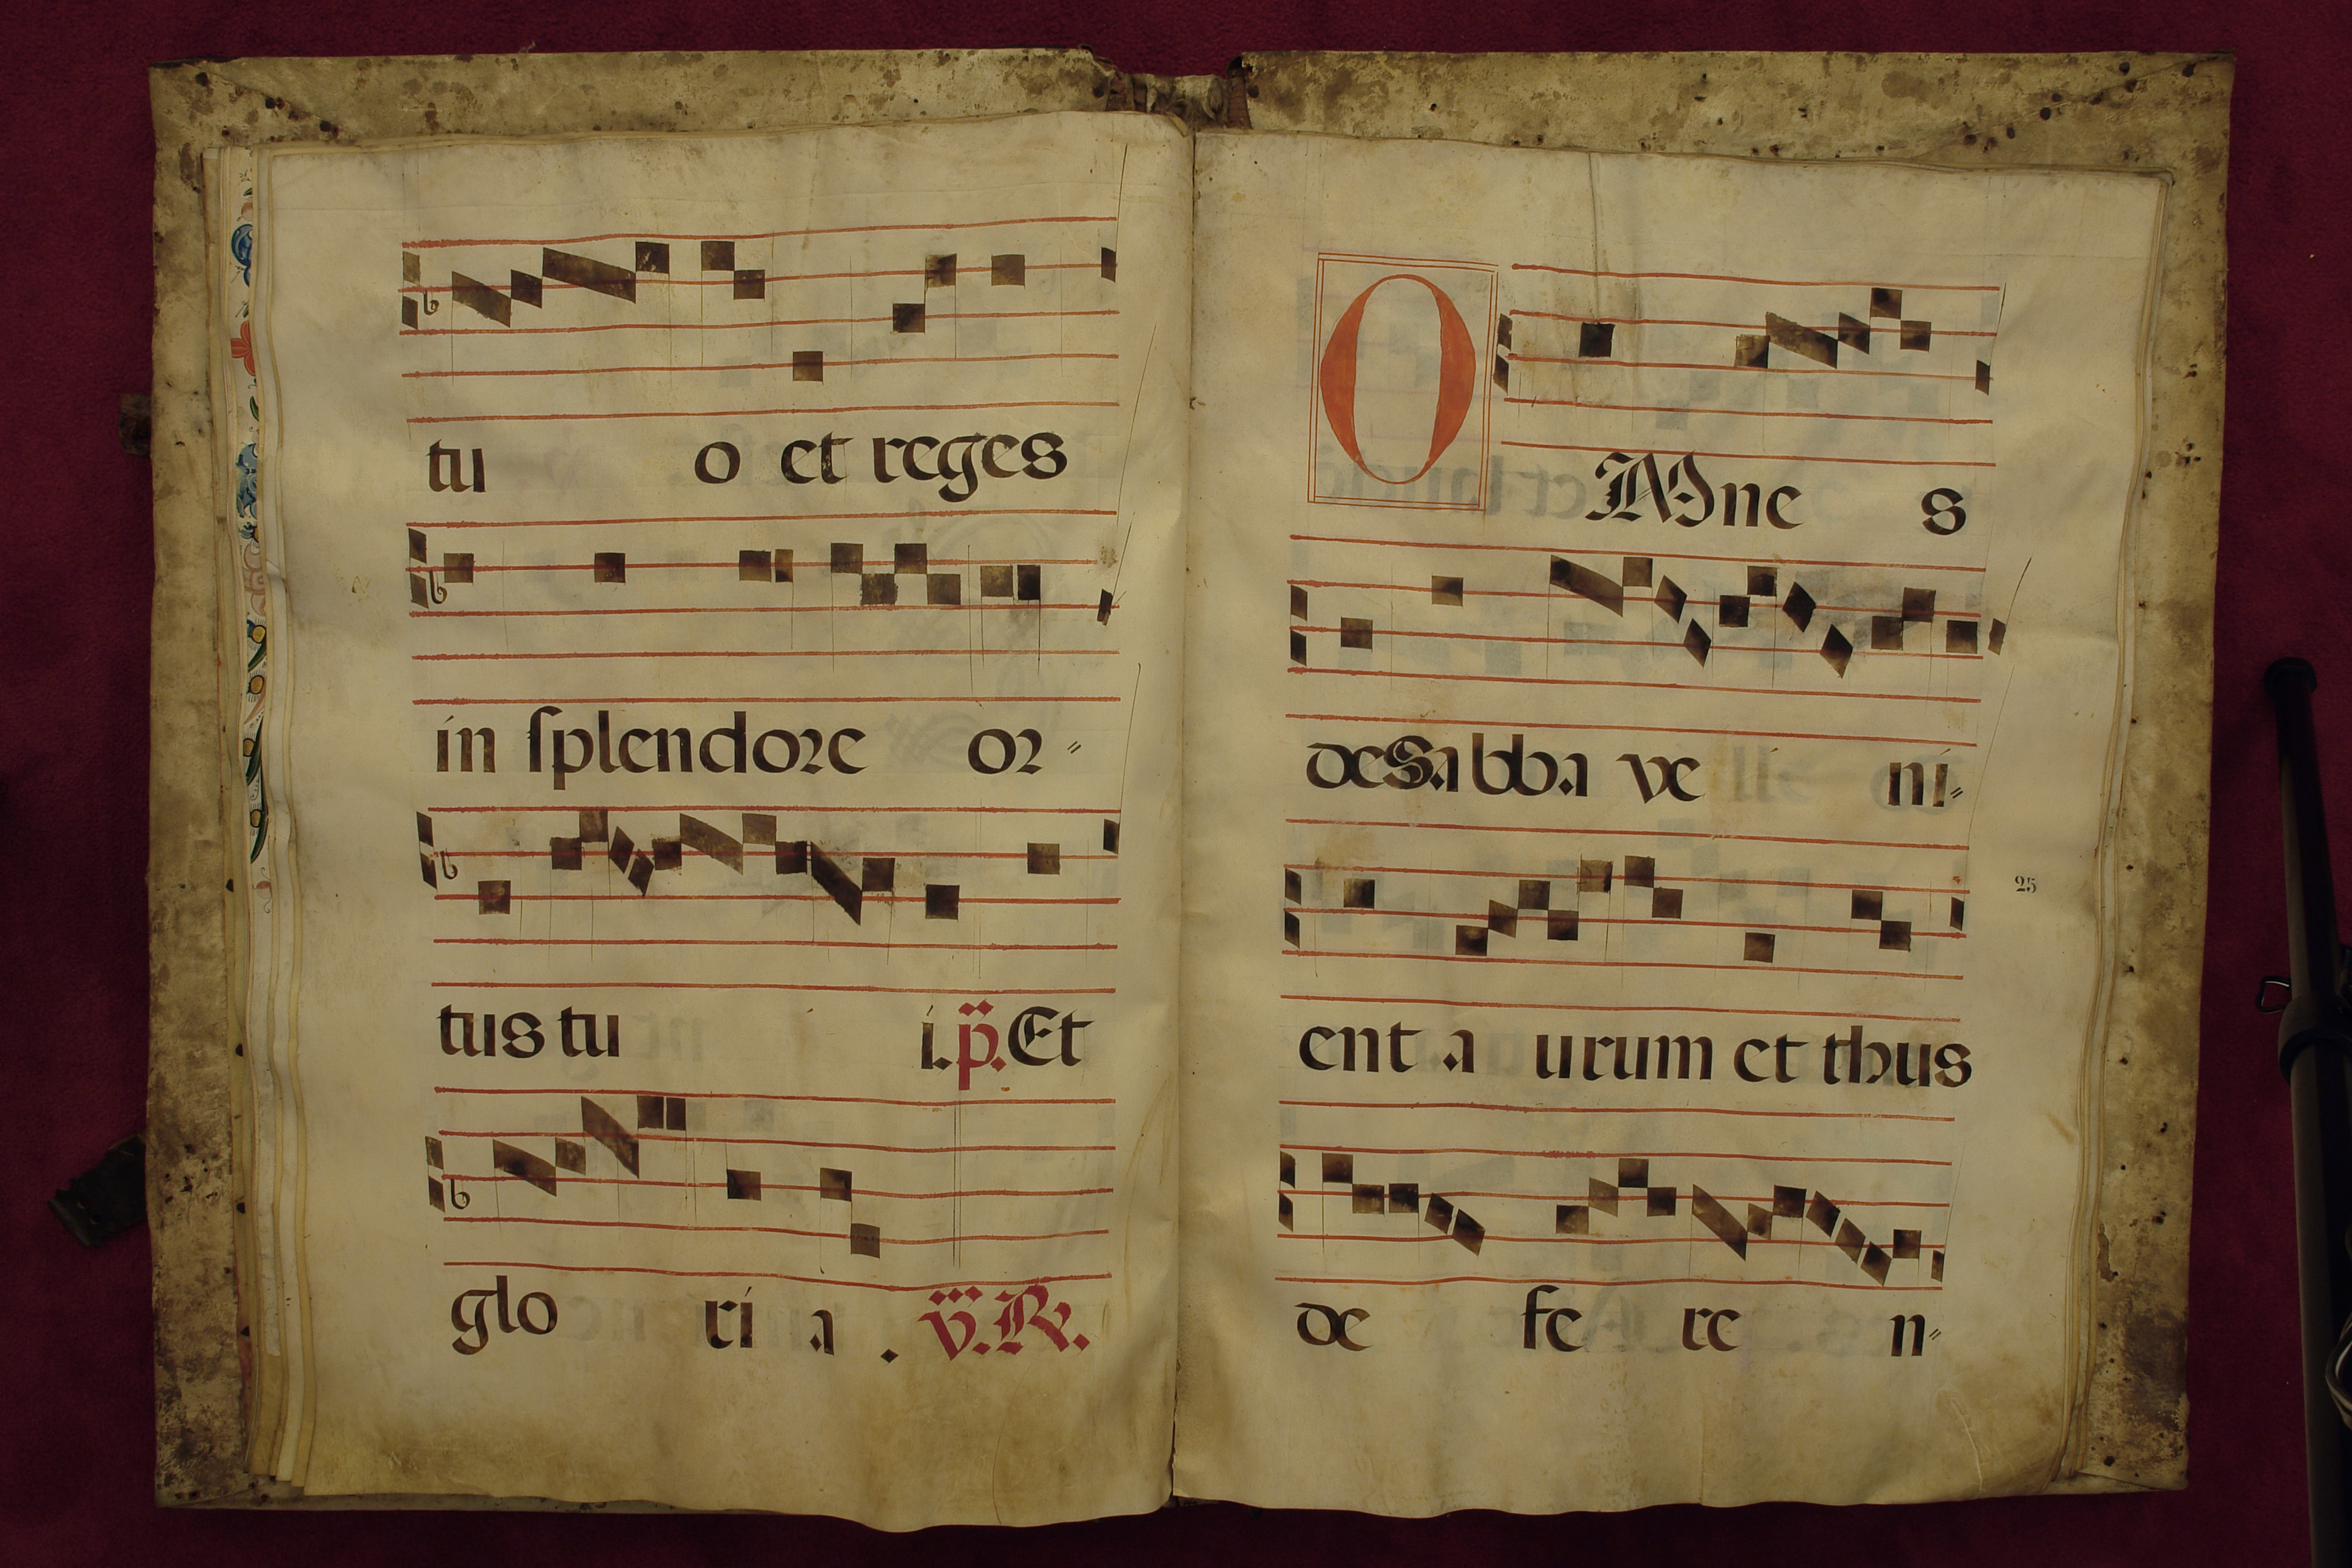 tu o et reges
in ſplendore or⸗
tus tu i. p̈. Et
glo ri a . v̈. R.
OMne s
de Sabba ve ni⸗
25
ent a urum et thus
de fe re n⸗